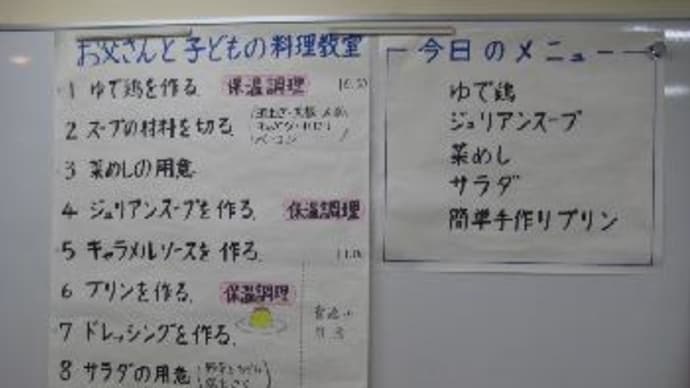 お父さんと子どもの料理教室
1 ゆで鶏を作る. 保温調理
2 スープの材料を切る.
3 菜めしの用意
4 ジュリアンスープを作る. 保温調理
5 キャラメルソースを作る.
6 プリンを作る. 保温調理
7 ドレッシングを作る.
8 サラダの用意
今日のメニュー
ゆで鶏
ジュリアンスープ
菜めし
サラダ
簡単手作りプリン